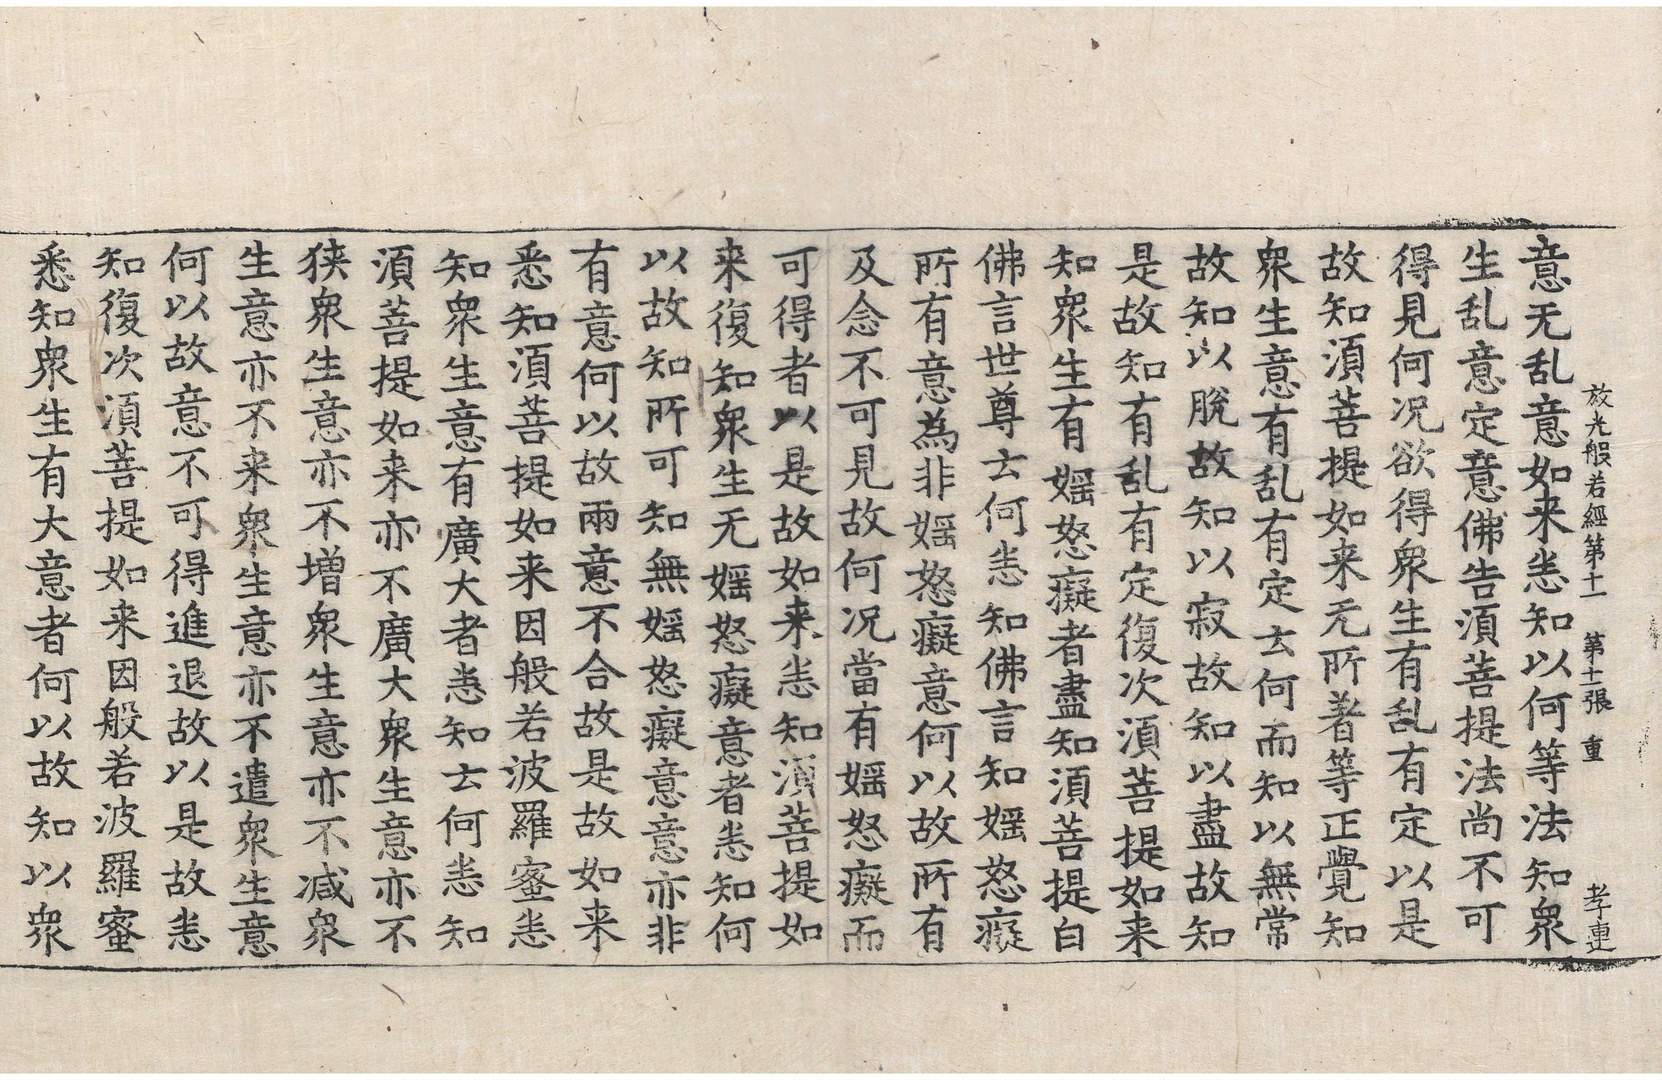 放光般若經第十一 第十二張 重 孝連
意无乱意如来悉知以何等法知衆
生乱意定意佛告湏菩提法尚不可
得見何况欲得衆生有乱有定以是
故知湏菩提如来无所著等正覺知
衆生意有乱有定云何而知以無常
故知以脫故知以寂故知以盡故知
是故知有乱有定復次湏菩提如来
知衆生有婬怒癡者盡知湏菩提白
佛言世尊云何悉知佛言知婬怒癡
所有意為非婬怒癡意何以故所有
及念不可見故何况當有婬怒癡而
可得者以是故如来悉知湏菩提如
来復知衆生无婬怒癡意者悉知何
以故知所可知無婬怒癡意意亦非
有意何以故兩意不合故是故如来
悉知湏菩提如来因般若波羅蜜悉
知衆生意有廣大者悉知云何悉知
湏菩提如来亦不廣大衆生意亦不
狹衆生意亦不增衆生意亦不减衆
生意亦不来衆生意亦不遣衆生意
何以故意不可得進退故以是故悉
知復次湏菩提如来因般若波羅蜜
悉知衆生有大意者何以故知以衆